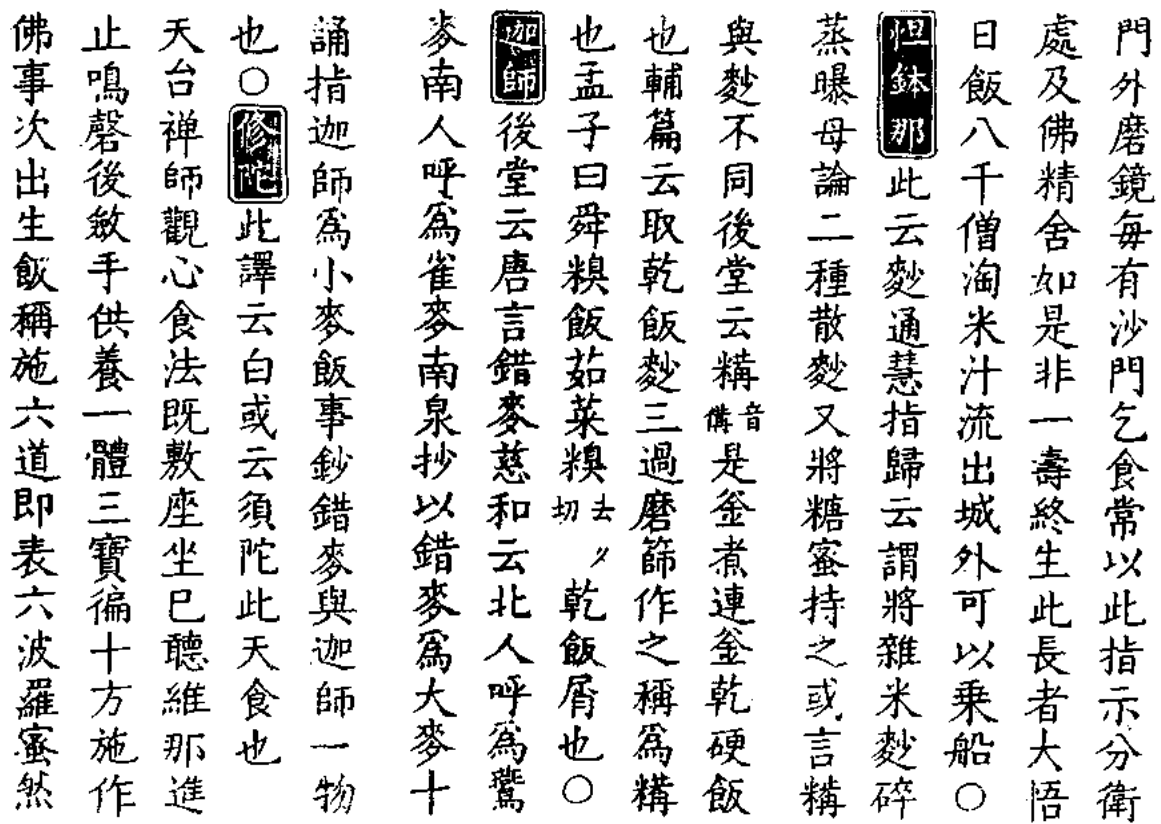 門外磨鏡每有沙門乞食常以此指示分衛
處及佛精舍如是非一壽終生此長者大悟
日飯八千僧淘米汁流出城外可以乗船○
怛鉢那此云麨通慧指歸云謂將雜米麨碎
蒸曝母論二種散麨又將糖蜜持之或言糒
與麨不同後堂云糒音備是釜煮連釜乾硬飯
也輔篇云取乾飯麨三過磨篩作之稱爲糒
也孟子曰舜糗飯茹菜糗去久切乾飯屑也○
迦師後堂云唐言錯麥慈和云北人呼爲鷰
麥南人呼爲雀麥南泉抄以錯麥爲大麥十
誦指迦師爲小麥飯事鈔錯麥與迦師一物
也○修陀此譯云白或云須陀此天食也
天台禅師觀心食法既敷座坐巳聽維那進
止鳴磬後斂手供養一體三寶徧十方施作
佛事次出生飯稱施六道即表六波羅蜜然